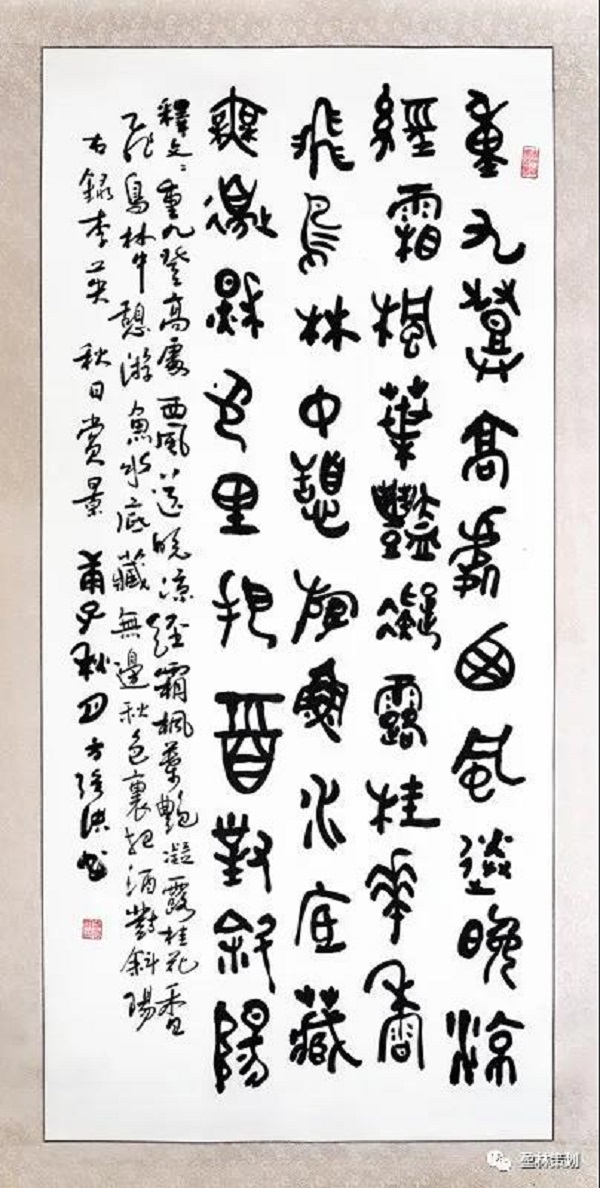 重九登高處西風送晚涼
經霜楓葉艷凝露桂花香
飛鳥林中憩游魚水底藏
無邊秋色里把酒對斜陽
釋文：重九登高處西風送晚涼經霜楓葉艷凝露桂花香
飛鳥林中憩游魚水底藏無邊秋色裏把酒對斜陽
右錄李英 秋日賞景 庚子秋月方洪書
盈林策划